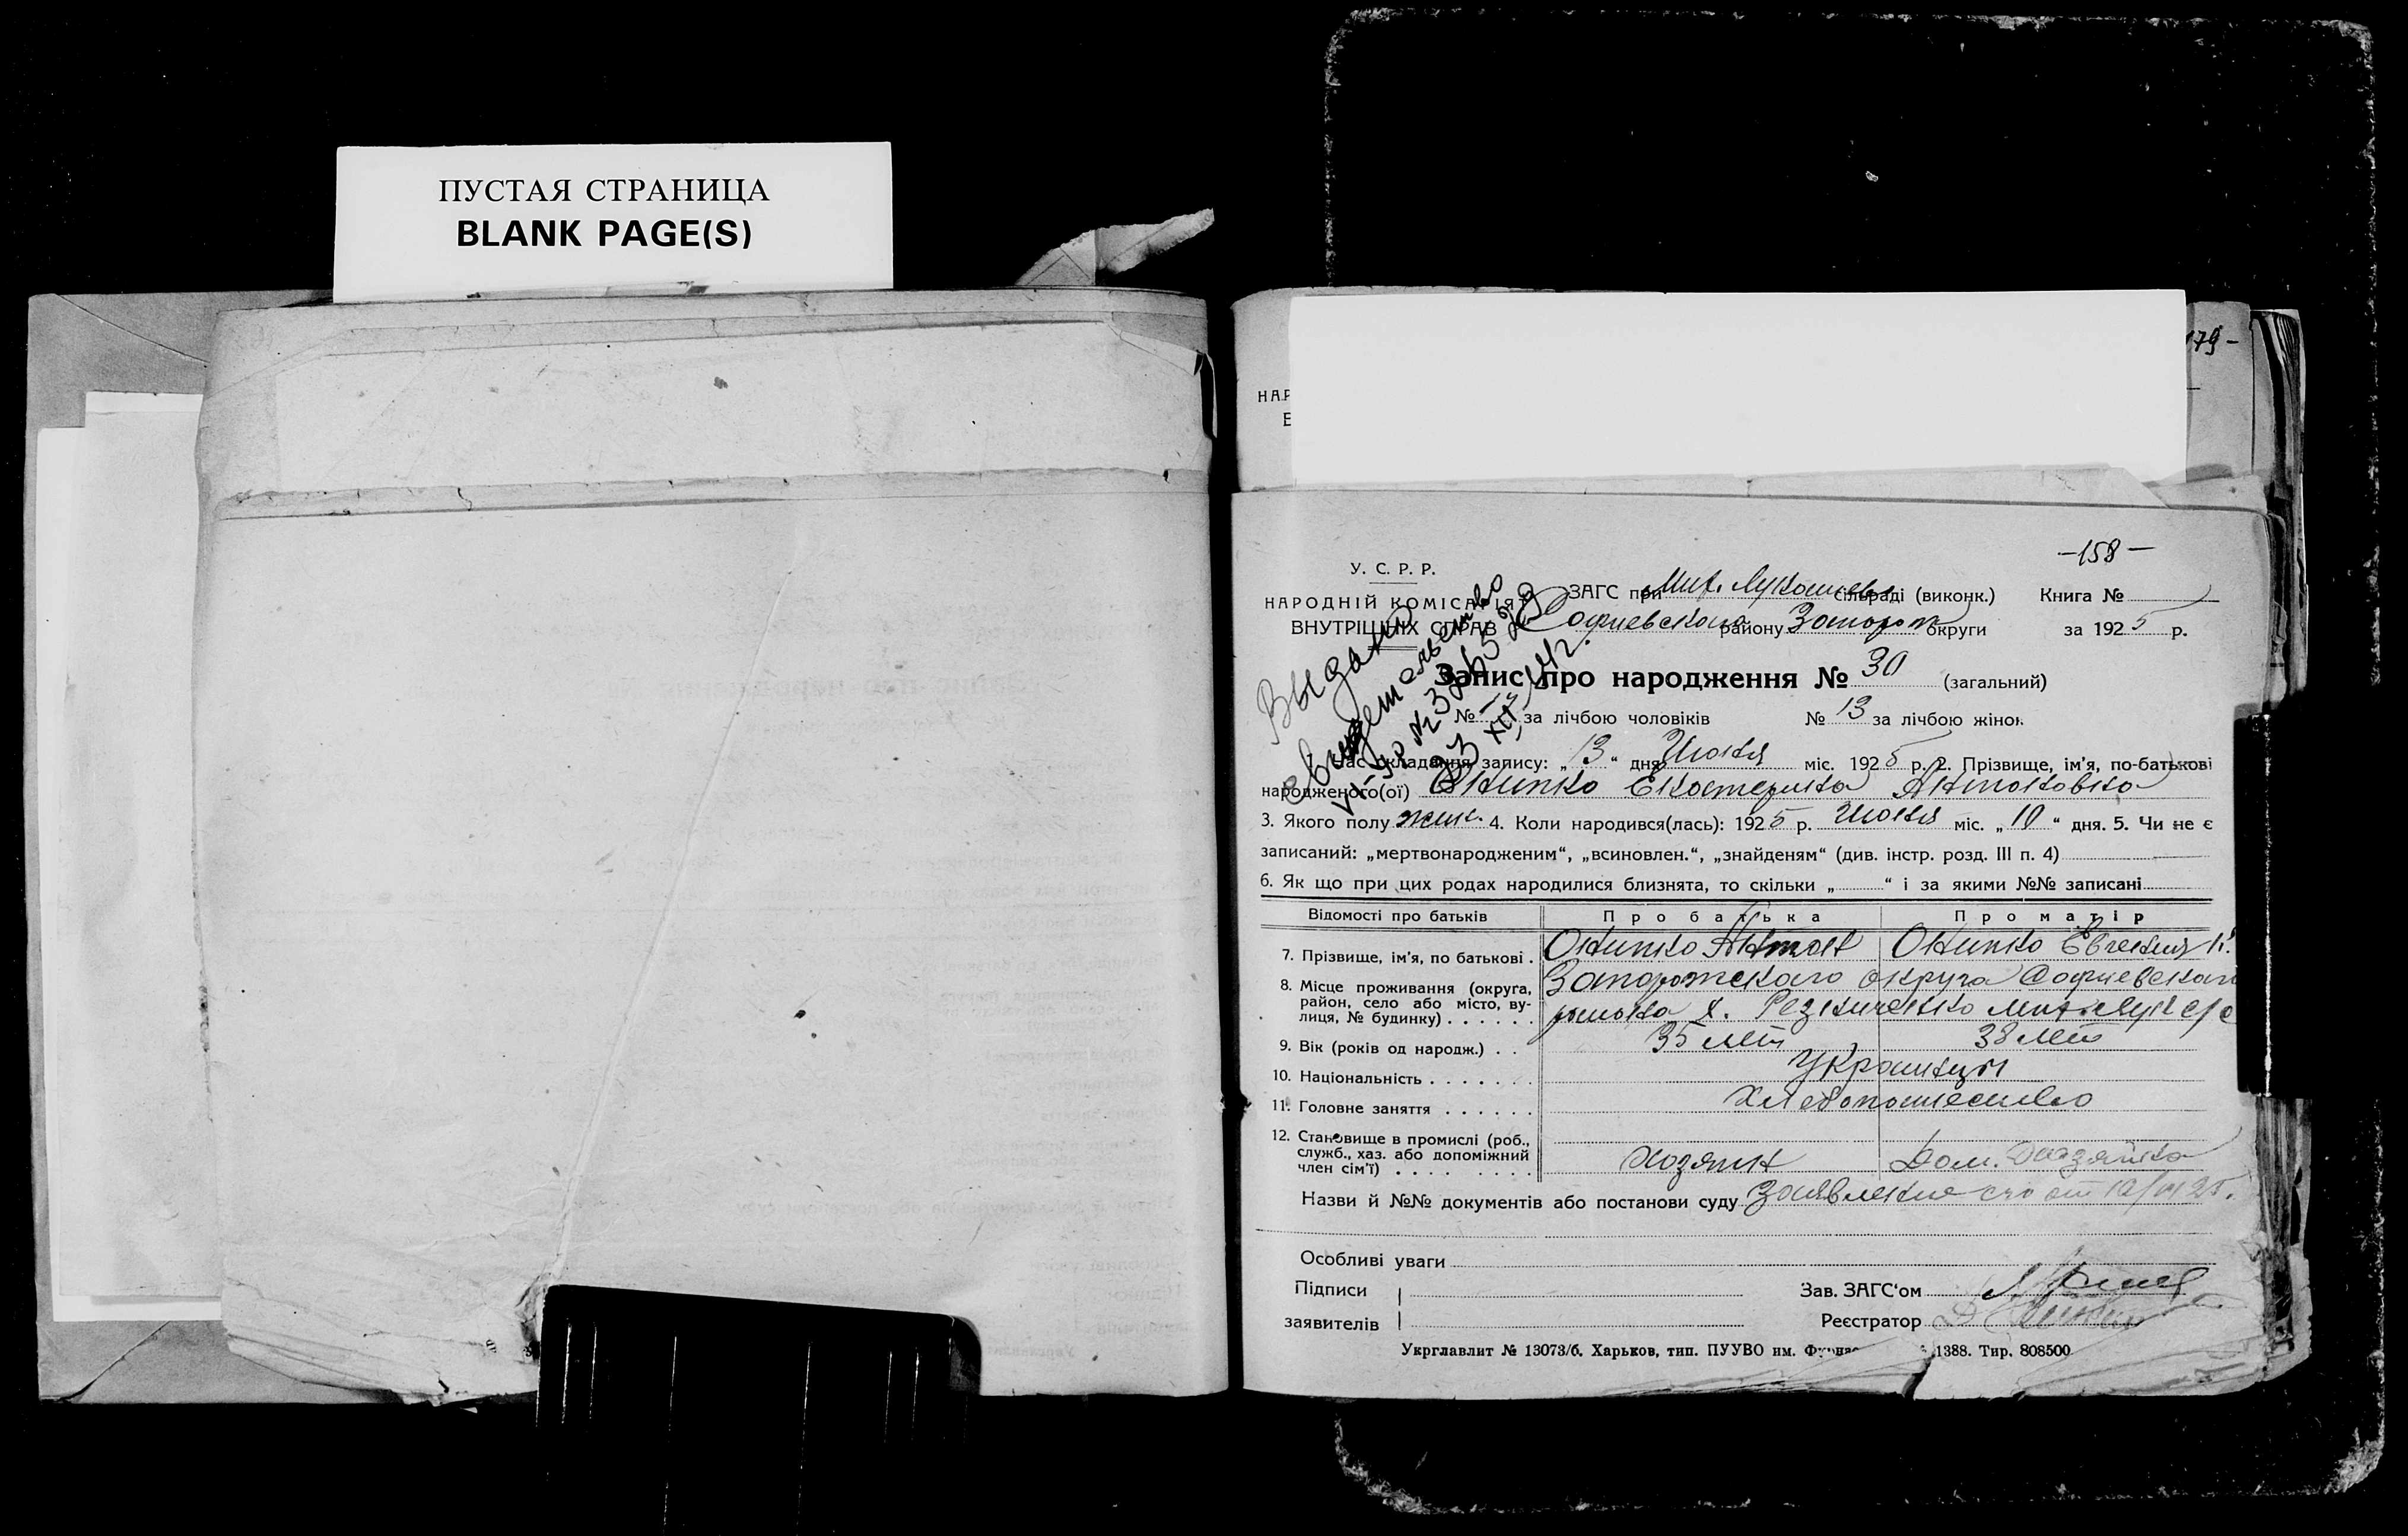 ПУСТАЯ СТРАНИЦА
BLANK PAGE(S)
179 -
НАР
-158-
У. С. Р. Р.
НАРОДНІЙ КОМІСАРІЯТ
ВНУТРІШНІХ СПРАВ
ЗАГС при сільраді (виконк.) Книга №
Софиевского району Запорож округи за 1925 р.
Выдано
свидетельство
23 XII
Запис про народження № 30 (загальний)
№ — за лічбою чоловіків № 13 за лічбою жінок
Час складання запису: „13“ дня Июля міс. 1925 р. 2. Прізвище, ім'я, по-батькові
народженого(ої) Онипко Екатерина Антоновна
3. Якого полу жен. 4. Коли народився(лась): 1925 р. Июля міс. „10“ дня. 5. Чи не є
записаний: „мертвонародженим“, „всиновлен.“, „знайденям“ (див. інстр. розд. III п. 4)
6. Як що при цих родах народилися близнята, то скільки „ “ і за якими №№ записані
Відомості про батьків Про батька Про матір
7. Прізвище, ім'я, по батькові . Онипко Антон Онипко Евгения
8. Місце проживання (округа, район, село або місто, вулиця, № будинку) . . . . . . Запорожского округа Софиевского
района х.
9. Вік (років од народж.) . . 35 лет 38 лет
10. Національність . . . . . . . Украинцы
11. Головне заняття . . . . . . Хлебопашество
12. Становище в промислі (роб.,
служб., хаз. або допоміжний
член сім'ї) . . . . . . . . Хозяин Дом. Хозяйка
Назви й №№ документів або постанови суду заявление
Особливі уваги
Підписи
заявителів
Зав. ЗАГС'ом
Реєстратор
Укрглавлит № 13073/б. Харьков, тип. ПУУВО им. 1388. Тир. 808500